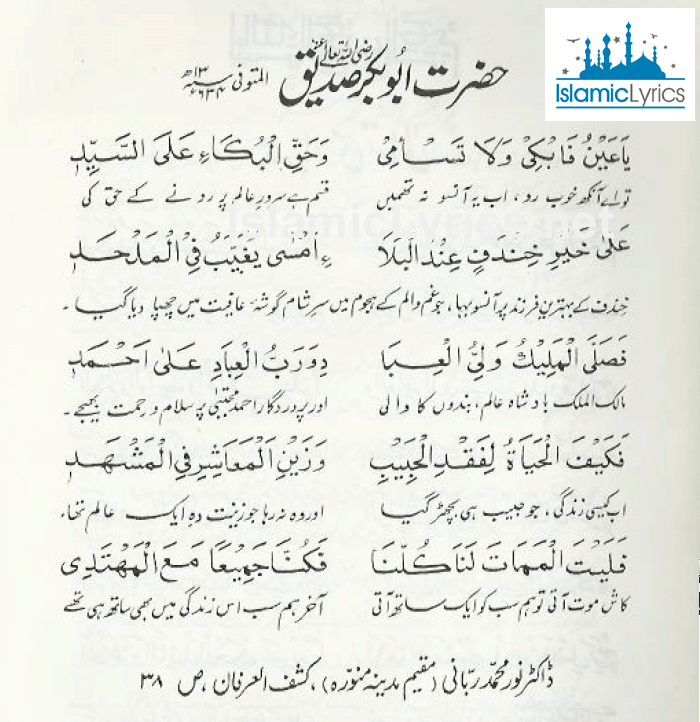 IslamicLyrics
حضرت ابُوبکر صدیق رضی اللہ تعالیٰ عنہ المتوفی ۱۳ھ ۶۳۴ء
يَاعَيْنُ فَابْكِىْ وَلَا تَسْأَمِىْ وَحَقِّ الْبُكَاءِ عَلَى السَّيِّدِ
تو اے آنکھ خوب رو، اب یہ آنسو نہ تھمیں قسم ہے سرورِ عالم پر رونے کے حق کی
عَلىٰ خَيْرِ خِنْدَفٍ عِنْدَ الْبَلَا ءِ اَمْسٰى يُغَيَّبُ فِى الْمَلْحَدِ
خندف کے بہترین فرزند پر آنسو بہا، جو غم والم کے ہجوم میں سرِ شام گوشۂ عافیت میں چھپا دیا گیا۔
فَصَلَّى الْمَلِيْكُ وَلِىُّ الْعِبَا دِوَرَبُّ الْعِبَادِ عَلىٰ اَحْمَدِ
مالک الملک بادشاہ عالم، بندوں کا والی اور پروردگار احمد مجتبیٰ پر سلام و رحمت بھیجے۔
فَكَيْفَ الْحَيَاةُ لِفَقْدِ الْحَبِيْبِ وَزَيْنِ الْمَعَاشِرِ فِى الْمَشْهَدِ
اب کیسی زندگی، جو حبیب ہی بچھڑ گیا اور وہ نہ رہا جو زینت دہِ ایک عالم تھا،
فَلَيْتَ الْمَمَاتَ لَنَا كُلِّنَا فَكُنَّا جَمِيْعًا مَعَ الْمُهْتَدِىْ
کاش موت آتی تو ہم سب کو ایک ساتھ آتی آخر ہم سب اس زندگی میں بھی ساتھ ہی تھے
ڈاکٹر نور محمد ربانی (مقیم مدینہ منورہ)، کشف العرفان، ص ۳۸